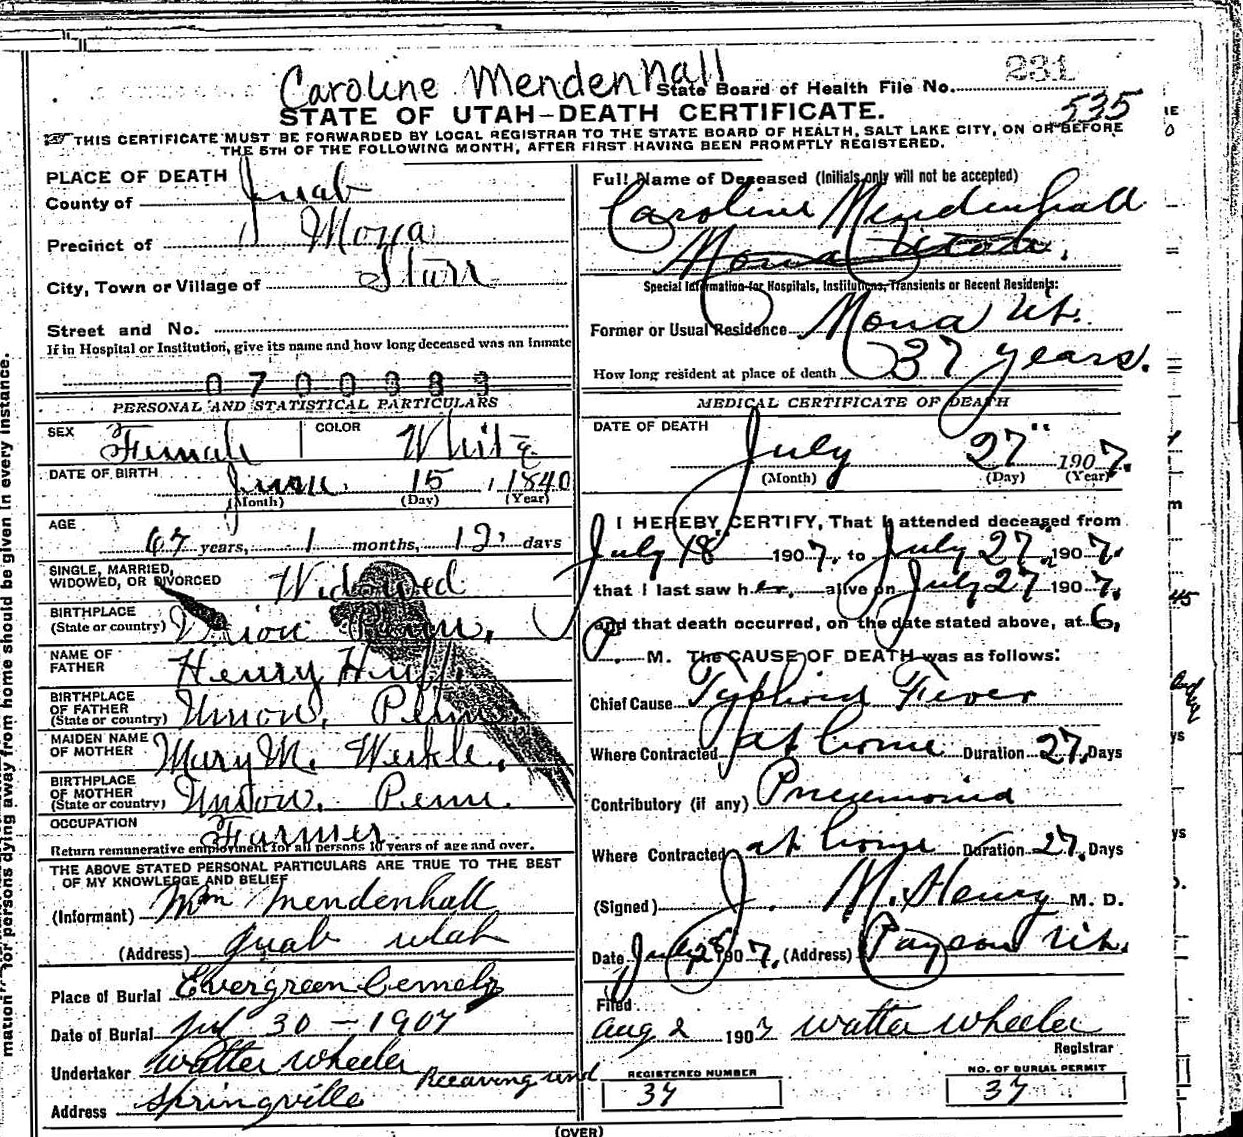 231
Caroline Mendenhall
State Board of Health File No.
535
STATE OF UTAH-DEATH CERTIFICATE.
THIS CERTIFICATE MUST BE FORWARDED BY LOCAL REGISTRAR TO THE STATE BOARD OF HEALTH, SALT LAKE CITY, ON OR BEFORE
THE 5TH OF THE FOLLOWING MONTH, AFTER FIRST HAVING BEEN PROMPTLY REGISTERED.
PLACE OF DEATH
County of Juab
Precinct of Mona
City, Town or Village of Starr
Street and No.
If in Hospital or Institution, give its name and how long deceased was an inmate
0700383
PERSONAL AND STATISTICAL PARTICULARS
SEX Female COLOR White
DATE OF BIRTH June 15, 1840
(Month) (Day) (Year)
AGE 67 years, 1 months, 12 days
SINGLE, MARRIED,
WIDOWED, OR DIVORCED Widowed
BIRTHPLACE
(State or country) Union Penn.
NAME OF
FATHER Henry Huff.
BIRTHPLACE
OF FATHER
(State or country) Union, Penn.
MAIDEN NAME
OF MOTHER Mary M. Weikle.
BIRTHPLACE
OF MOTHER
(State or country) Union. Penn.
OCCUPATION Farmer.
Return remunerative employment for all persons 10 years of age and over.
THE ABOVE STATED PERSONAL PARTICULARS ARE TRUE TO THE BEST
OF MY KNOWLEDGE AND BELIEF
(Informant) Wm Mendenhall
(Address) Juab utah
Place of Burial Evergreen Cemety
Date of Burial Jul 30 - 1907
Undertaker Walter Wheeler
Address Springville
Full Name of Deceased (Initials only will not be accepted)
Caroline Mendenhall
Mona Utah.
Special Information for Hospitals, Institutions, Transients or Recent Residents:
Former or Usual Residence Mona Ut.
How long resident at place of death 37 years.
MEDICAL CERTIFICATE OF DEATH
DATE OF DEATH
July 27" 1907.
(Month) (Day) (Year)
I HEREBY CERTIFY, That I attended deceased from
July 18" 1907, to July 27" 1907.
that I last saw her, alive on July 27 1907,
and that death occurred, on the date stated above, at 6,
P. M. The CAUSE OF DEATH was as follows:
Chief Cause Typhoid Fever
Where Contracted at home Duration 27. Days
Contributory (if any) Pneumonia
Where Contracted at home Duration 27. Days
(Signed) J. M. Henry M. D.
Date July 28" 1907. (Address) Payson Ut.
Filed
Aug 2 1907 Walter Wheeler
Registrar
REGISTERED NUMBER
37
NO. OF BURIAL PERMIT
37
(OVER)
for persons dying away from home should be given in every instance.